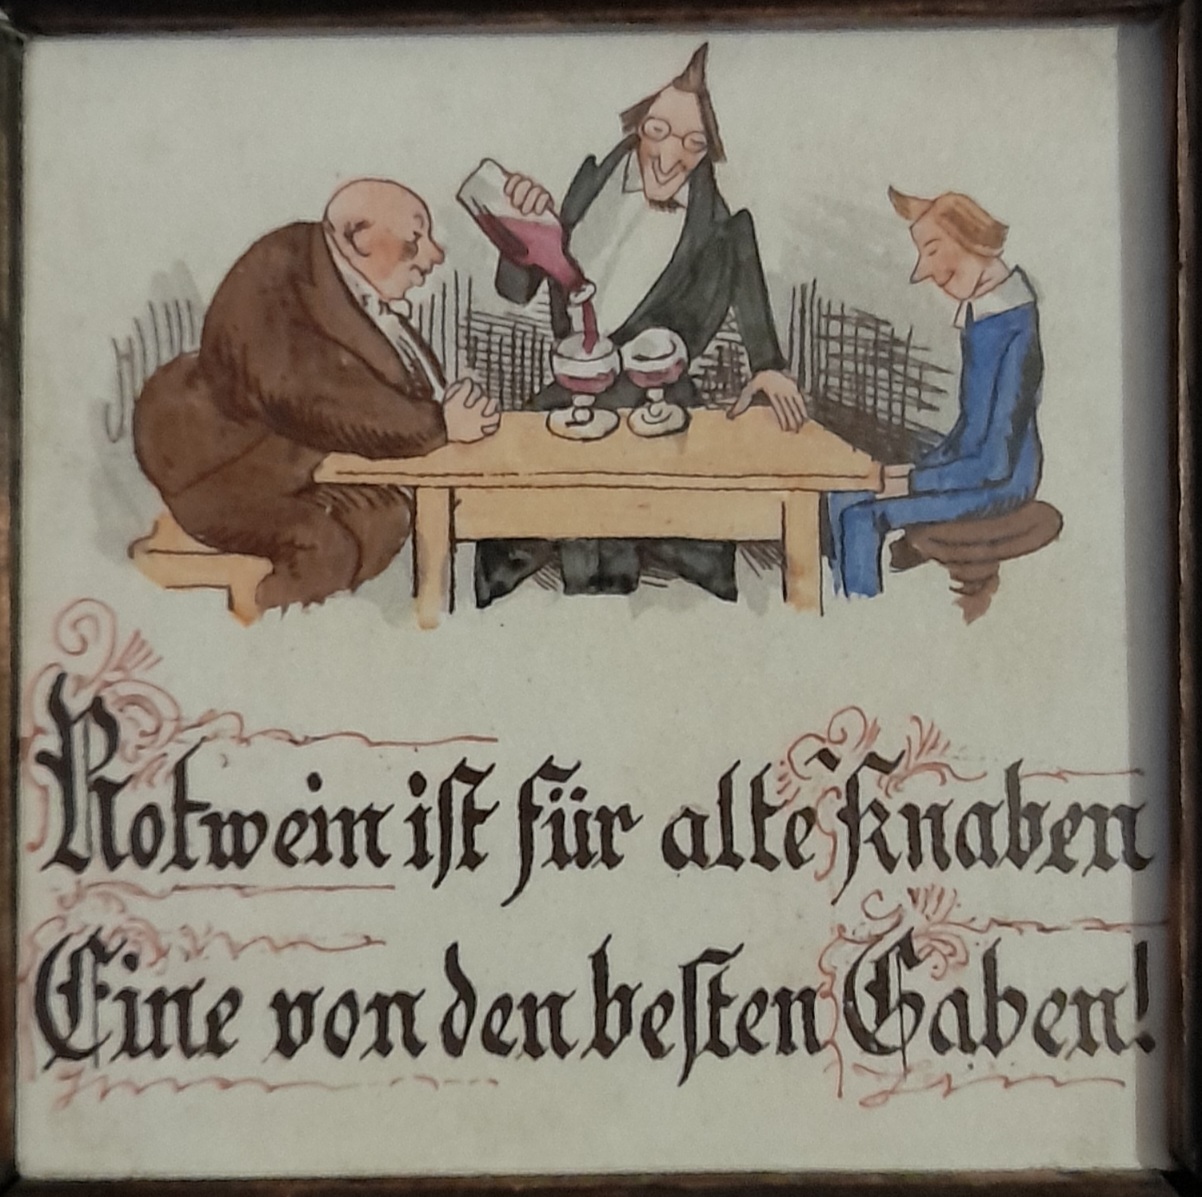 Rotwein ist für alte Knaben
Eine von den besten Gaben!